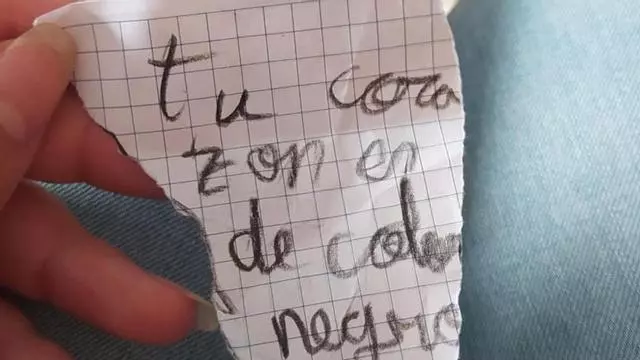 tu cora
zon es
de color
negro